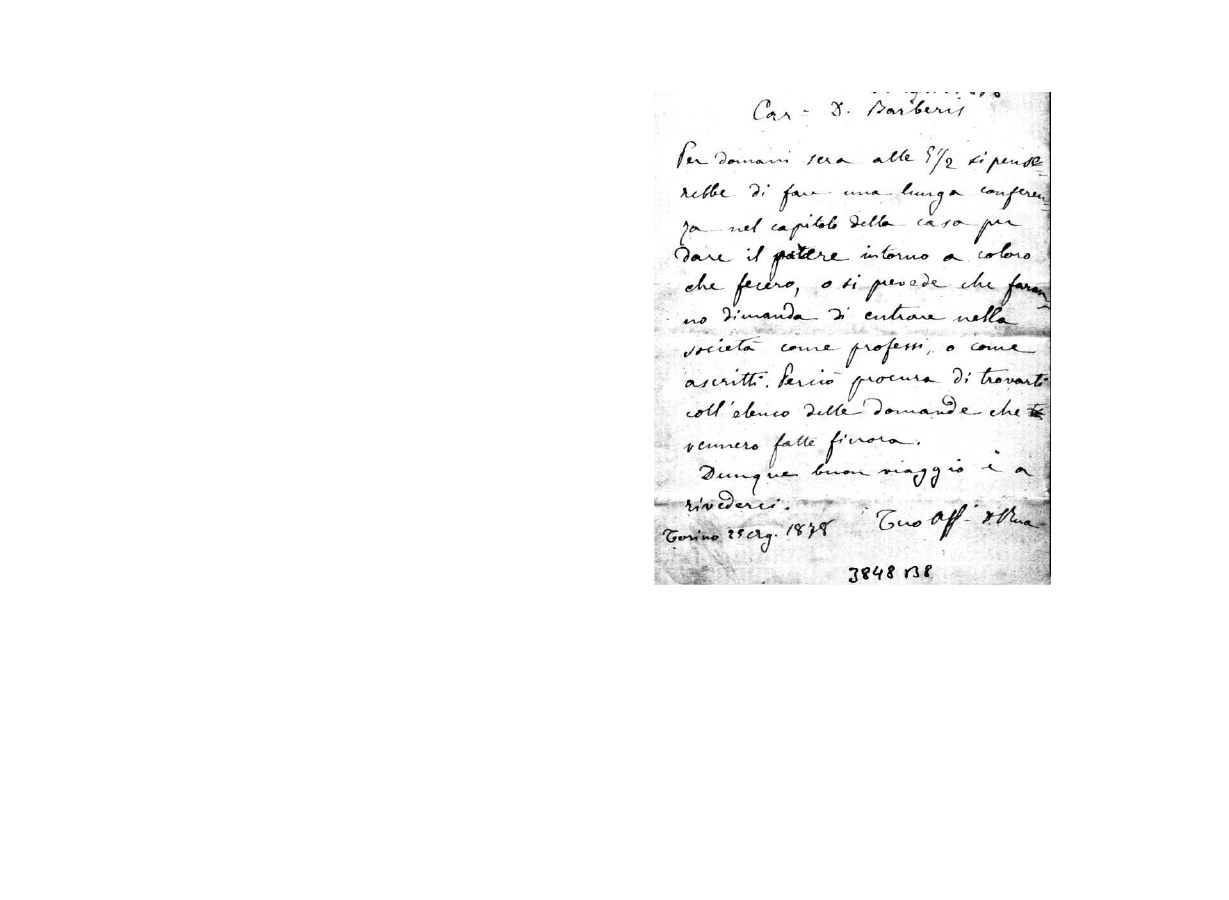 Car - D. Barberis
Per domani sera alle 5 1/2 si pense-
rebbe di fare una lunga conferen-
za nel capitolo della casa per
dare il potere intorno a coloro
che fecero, o si prevede che faran-
no dimanda di entrare nella
società come professi, o come
ascritti. Perciò procura di trovarti
coll'elenco delle domande che
vennero fatte finora.
Dunque buon viaggio e a
rivederci.
Tuo Aff - D Rua
Torino 25 Ag. 1878
3848 B8